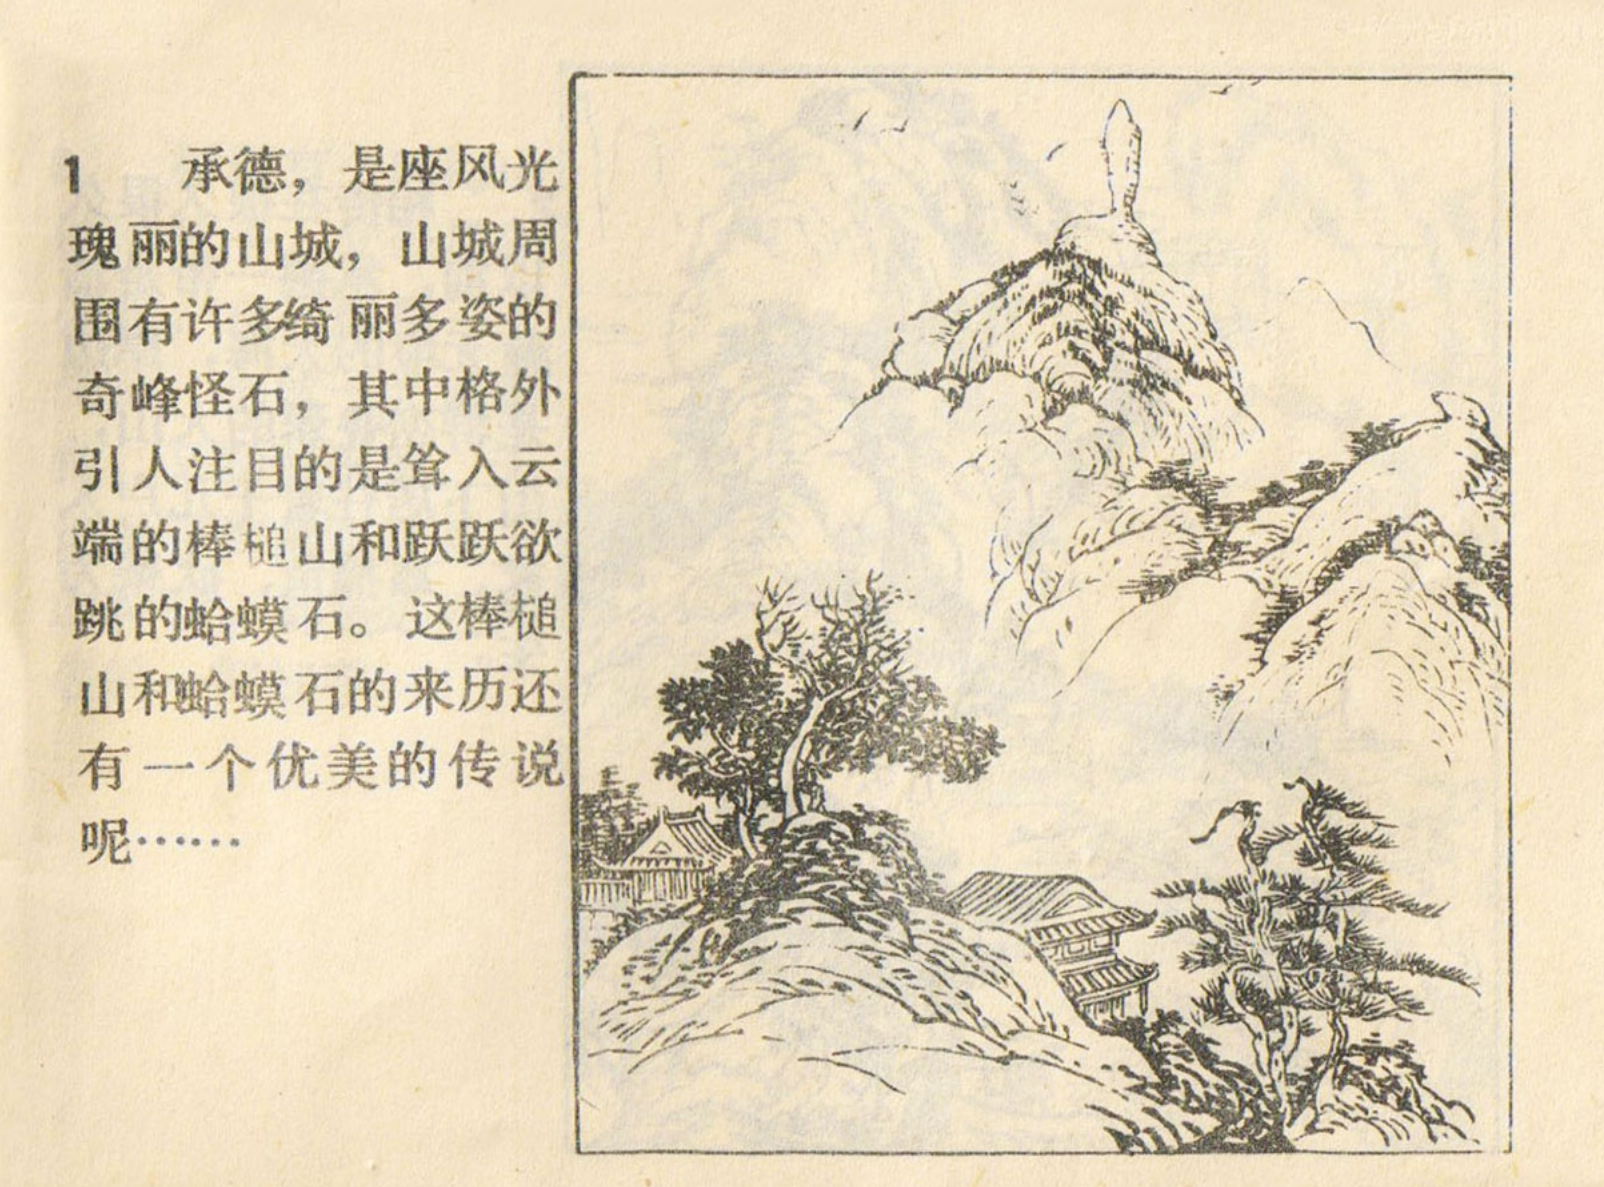 1 承德，是座风光
瑰丽的山城，山城周
围有许多绮丽多姿的
奇峰怪石，其中格外
引人注目的是耸入云
端的棒槌山和跃跃欲
跳的蛤蟆石。这棒槌
山和蛤蟆石的来历还
有一个优美的传说
呢……